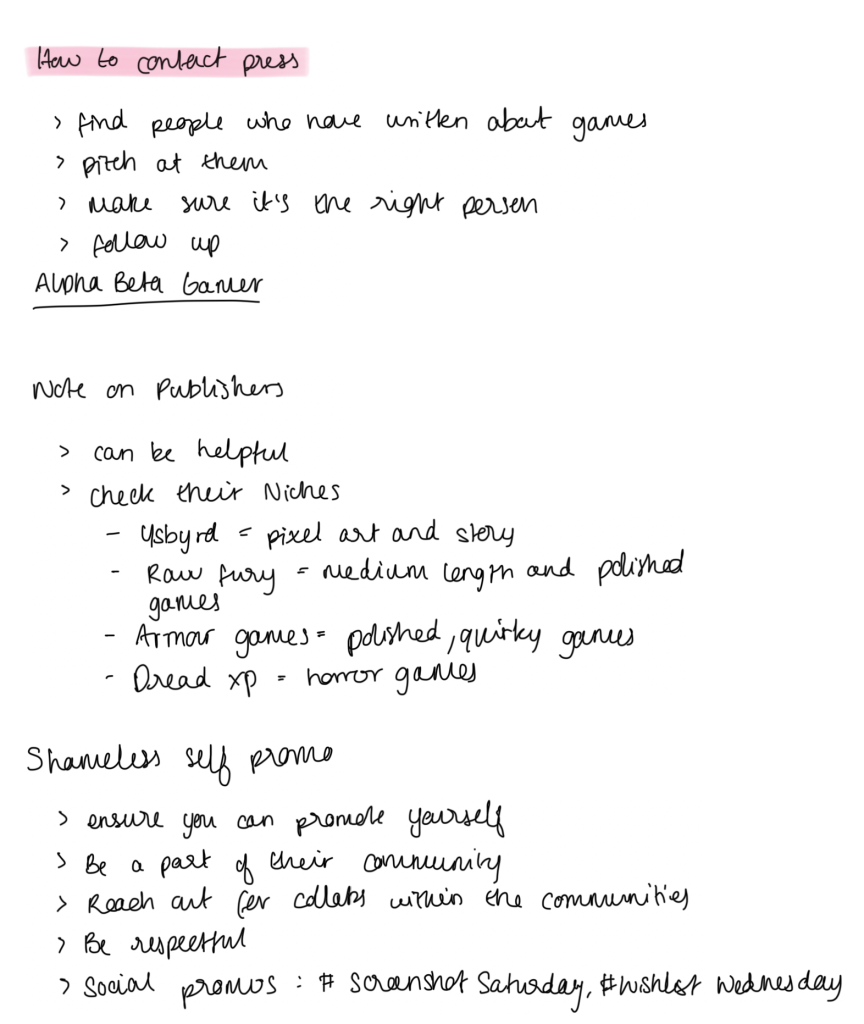 How to contact press
> find people who have written about games
> pitch at them
> make sure it's the right person
> follow up
Alpha Beta Gamer
Note on Publishers
> can be helpful
> check their Niches
- Ysbyrd = pixel art and story
- Raw fury = medium length and polished
games
- Armor games = polished, quirky games
- Dread xp = horror games
Shameless self promo
> ensure you can promote yourself
> Be a part of their community
> Reach out for collabs within the communities
> Be respectful
> Social promos : # Screenshot Saturday, #wishlist Wednesday